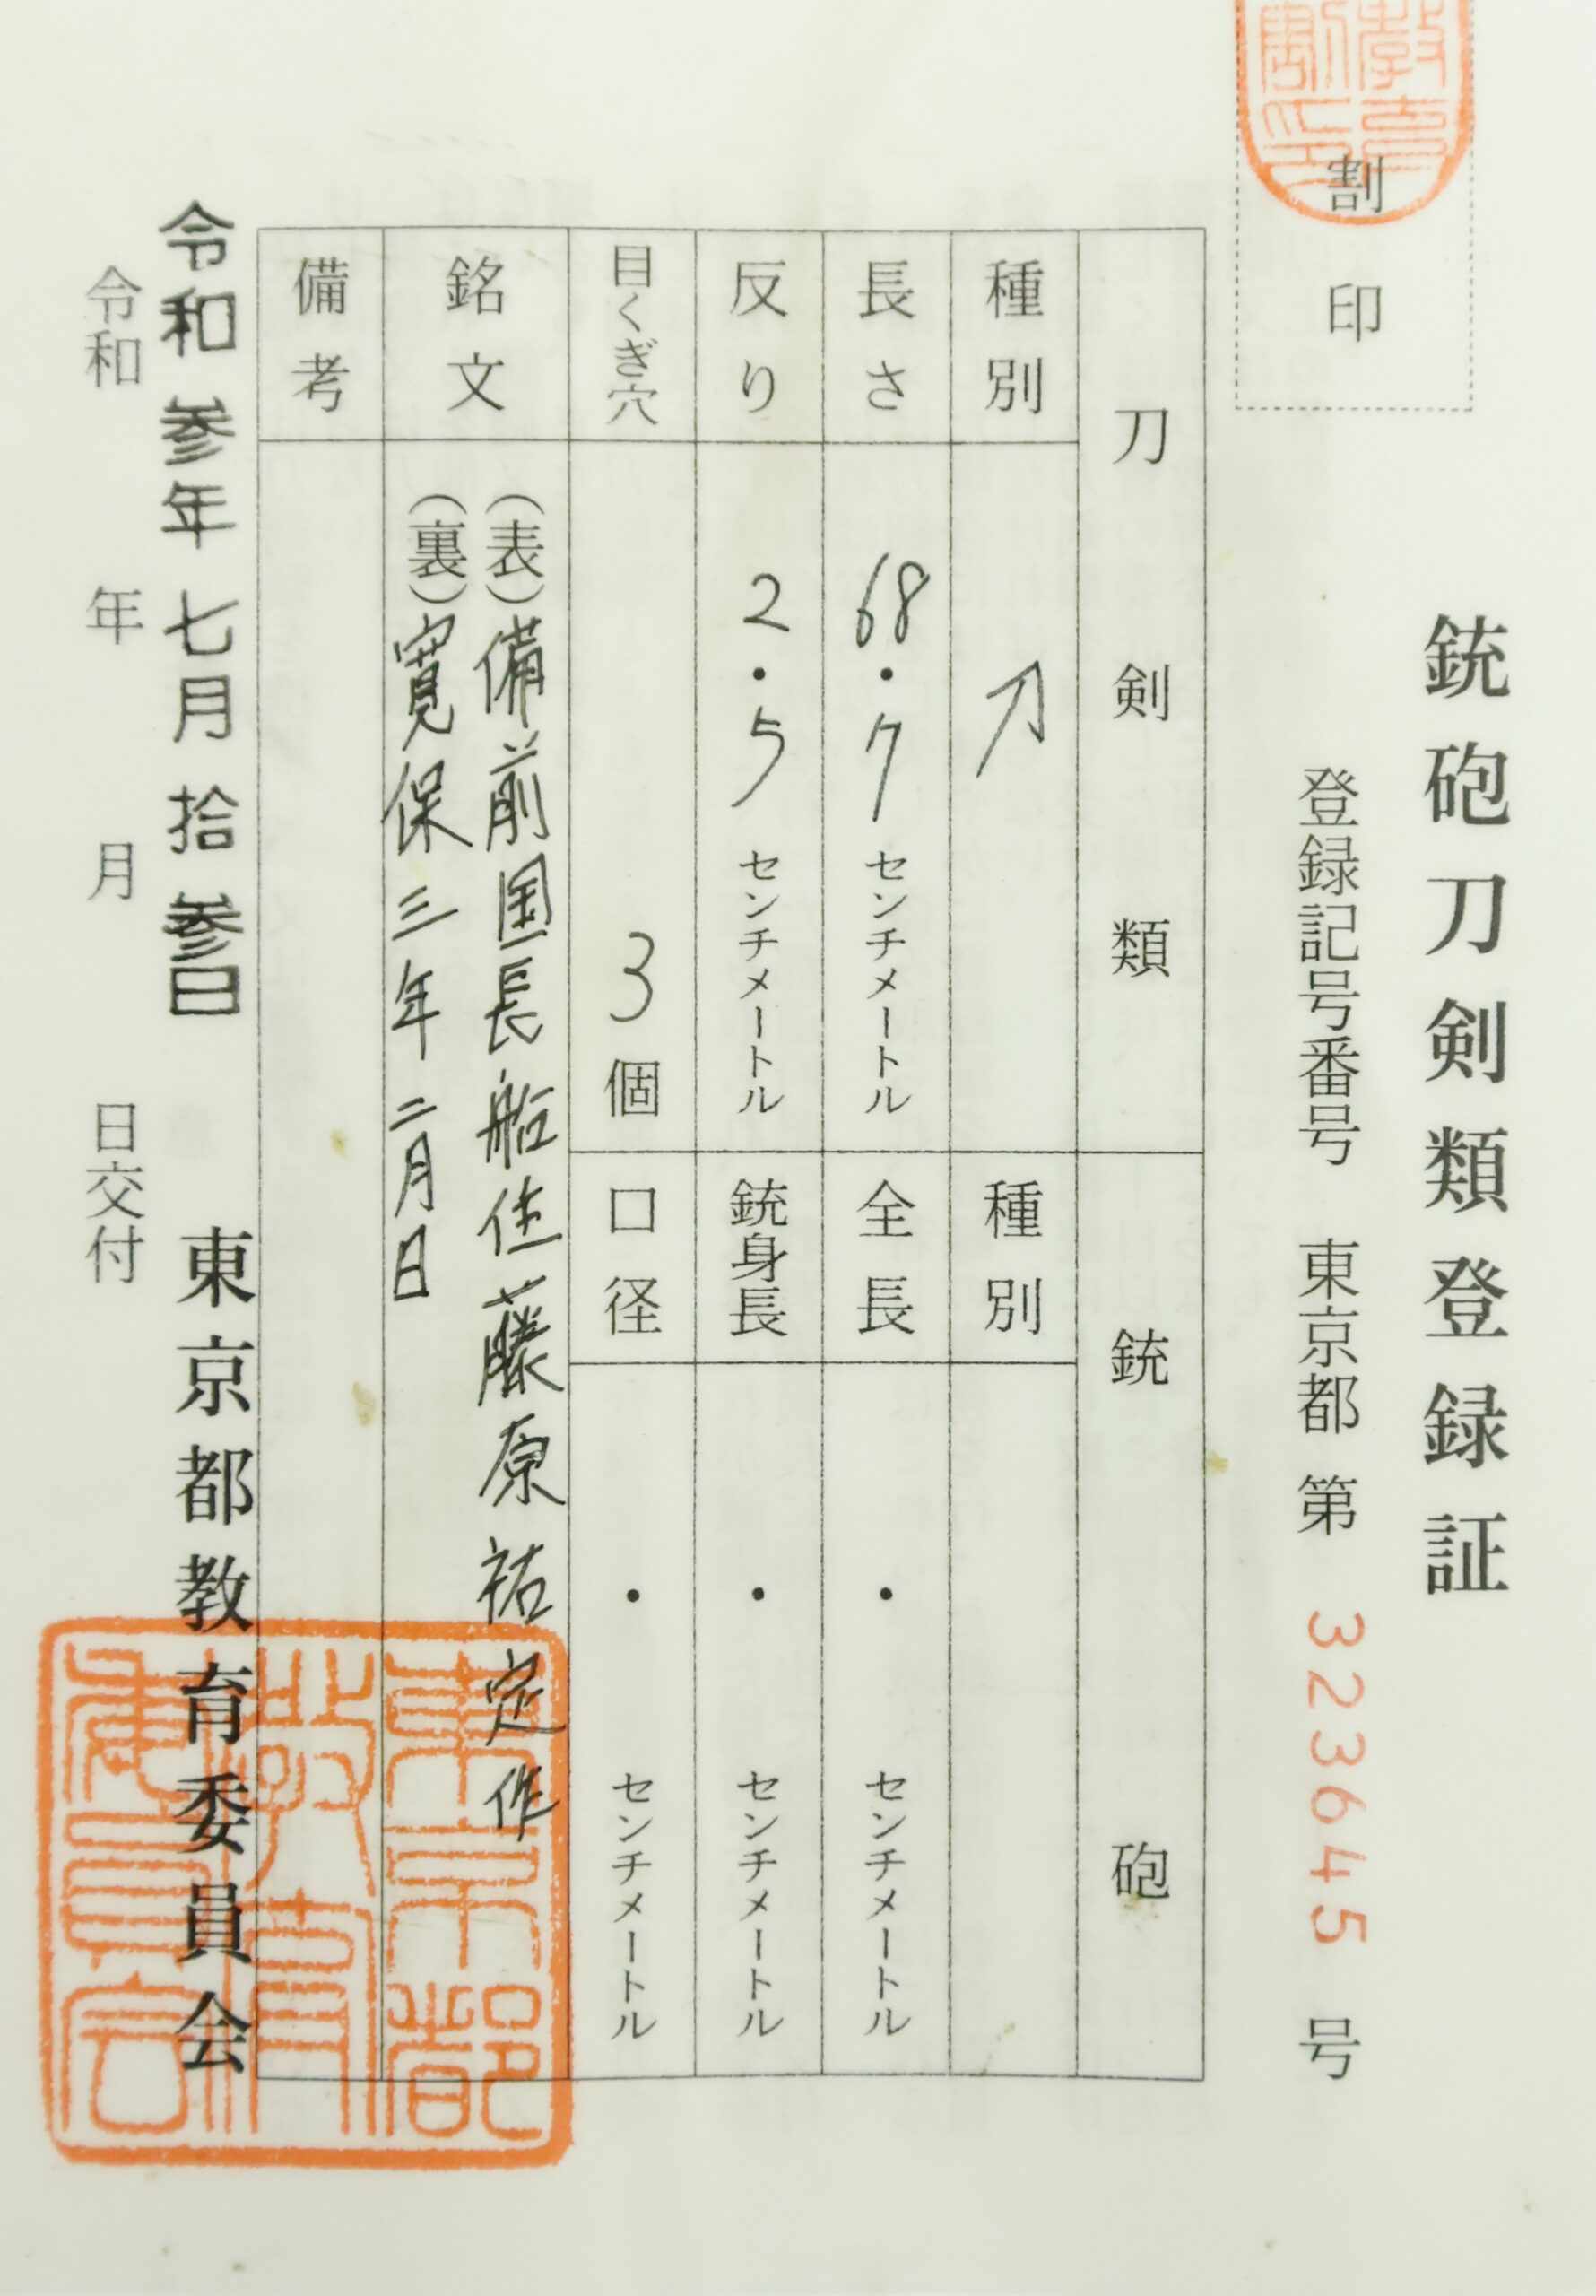 銃砲刀剣類登録証
割印
登録記号番号 東京都 第 323645 号
刀剣類
種別 刀
長さ 68.7 センチメートル
反り 2.5 センチメートル
目くぎ穴 3 個
銃砲
種別
全長 ・ センチメートル
銃身長 ・ センチメートル
口径 ・ センチメートル
銘文
(表)備前国長船住藤原祐定作
(裏)寛保三年二月日
備考
令和参年七月拾参日
東京都教育委員会
令和 年 月 日交付
東京都
教育
委員会